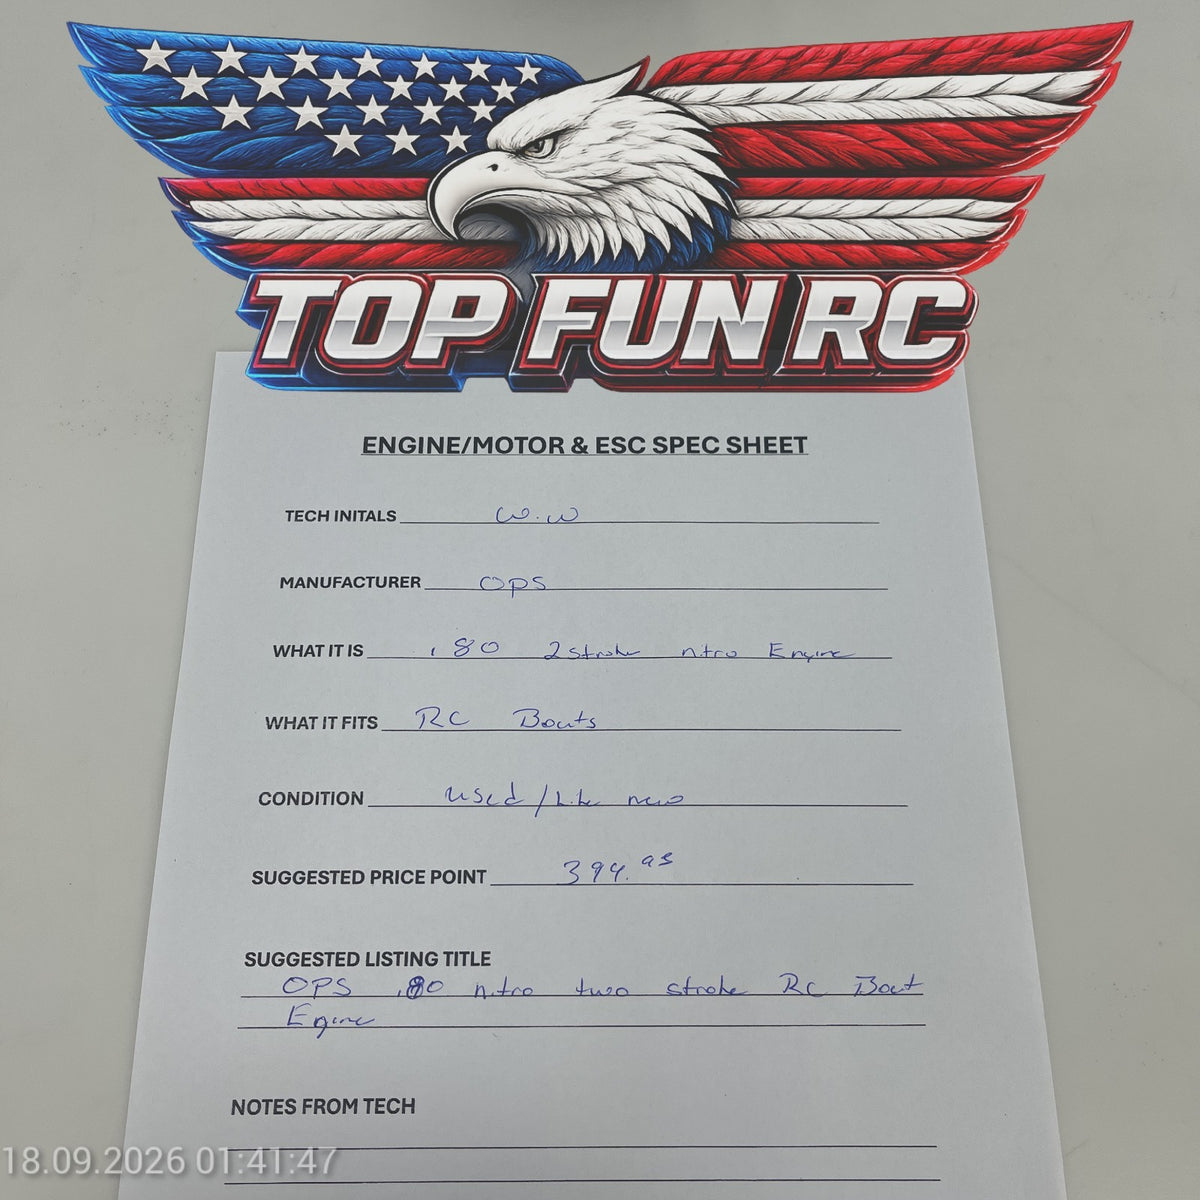 TOP FUN RC
ENGINE/MOTOR & ESC SPEC SHEET
TECH INITALS W.W
MANUFACTURER OPS
WHAT IT IS .80 2 stroke nitro Engine
WHAT IT FITS RC Boats
CONDITION used / Like new
SUGGESTED PRICE POINT 399.95
SUGGESTED LISTING TITLE
OPS .80 nitro two stroke RC Boat
Engine
NOTES FROM TECH
18.09.2026 01:41:47